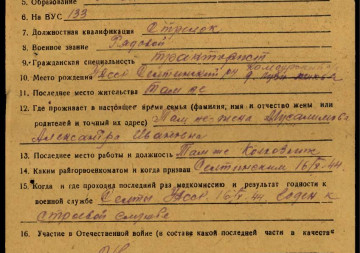 5. Образование
6. На ВУС 133
7. Должностная квалификация Стрелок
8. Военное звание Рядовой
9. Гражданская специальность Тракторист
10. Место рождения
11. Последнее место жительства Там же
12. Где проживает в настоящее время семья (фамилия, имя и отчество жены или
родителей и точный их адрес) Там же - жена
Александра Ивановна
13. Последнее место работы и должность Там же Колхозник
14. Каким райгорвоенкоматом и когда призван Селтинским 16/V-44
15. Когда и где проходил последний раз медкомиссию и результат годности к
военной службе Селты 16/V 44 годен к
строевой службе
16. Участие в Отечественной войне (в составе какой последней части в качестве